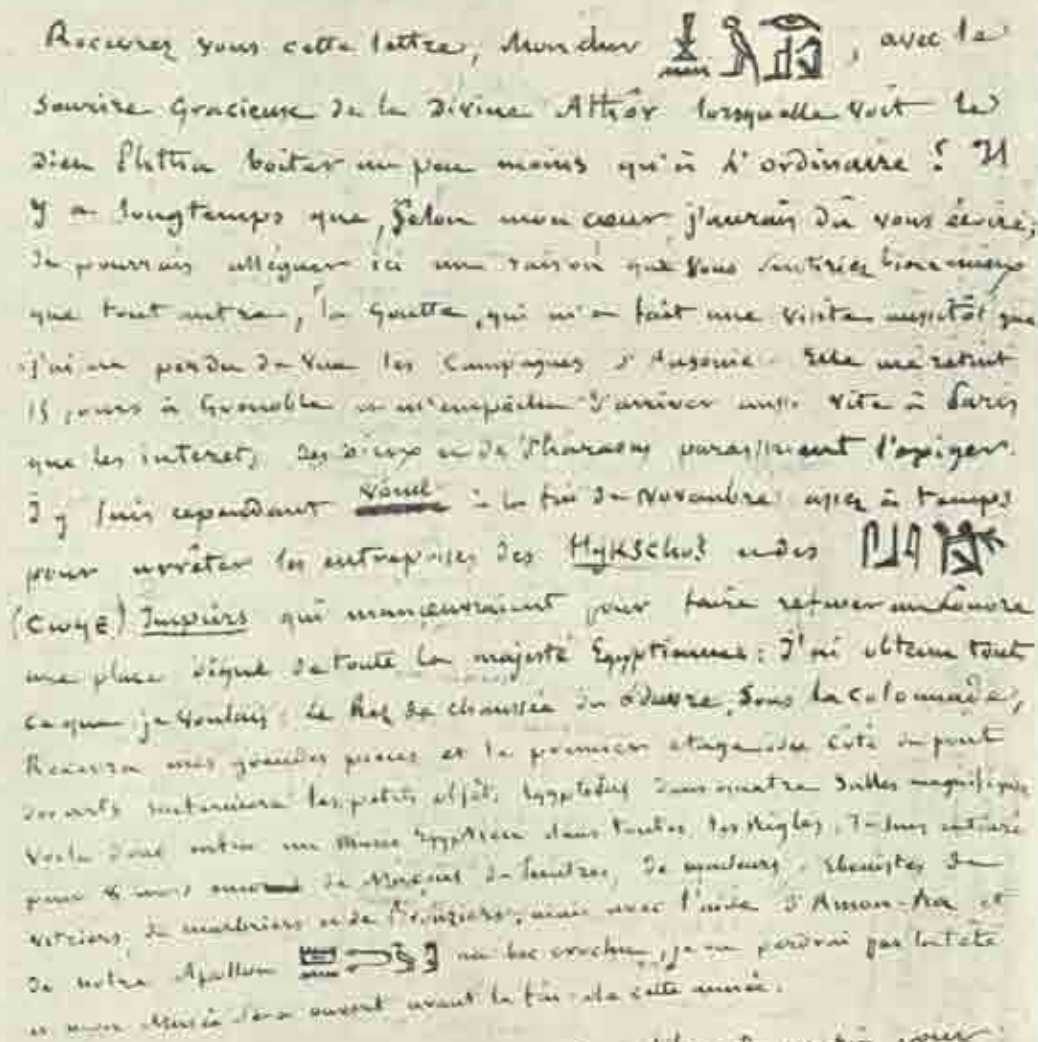 Recevrez vous cette lettre, Mon cher , avec le
Sourire Gracieux de la Divine Athôr lorsquelle voit le
Dieu Phtha boiter un peu moins qu'à l'ordinaire ? Il
y a longtemps que, selon mon cœur j'aurais dû vous écrire,
Je pourrais alléguer ici une raison que vous sentiriez bien mieux
que tout autre, la Goutte, qui m'a fait une visite aussitôt que
j'ai eu perdu de vue les Campagnes d'Ausonie. Elle me retint
15 jours à Grenoble et m'empêcha d'arriver aussi vite à Paris
que les interets des Dieux et de Pharaons paraissaient l'exiger.
J'y suis cependant venu à la fin de Novembre assez à temps
pour arrêter les entreprises des Hykschos et des
(ϹⲰϤⲈ) Impiers qui manœuvraient pour faire refuser au Louvre
une place digne de toute la majesté Egyptienne : J'ai obtenu tout
ce que je voulais : Le Rez de chaussée du Louvre, sous la Colonnade,
Recevra mes grandes pièces et le premier étage du Côté du pont
des arts renfermera les petits objets Egyptiens dans quatre Salles magnifiques
Voila donc enfin un Musée Egyptien dans toutes les Règles. Je suis entouré
pour mois encore de Maçons de Peintres, de , Ebenistes de
vitriers, de marbriers et de , mais avec l'aide d'Amon-Ra et
de notre Apollon au bec crochu, je ne perdrai pas la tête
et mon Musée sera ouvert avant la fin de cette année.
pour